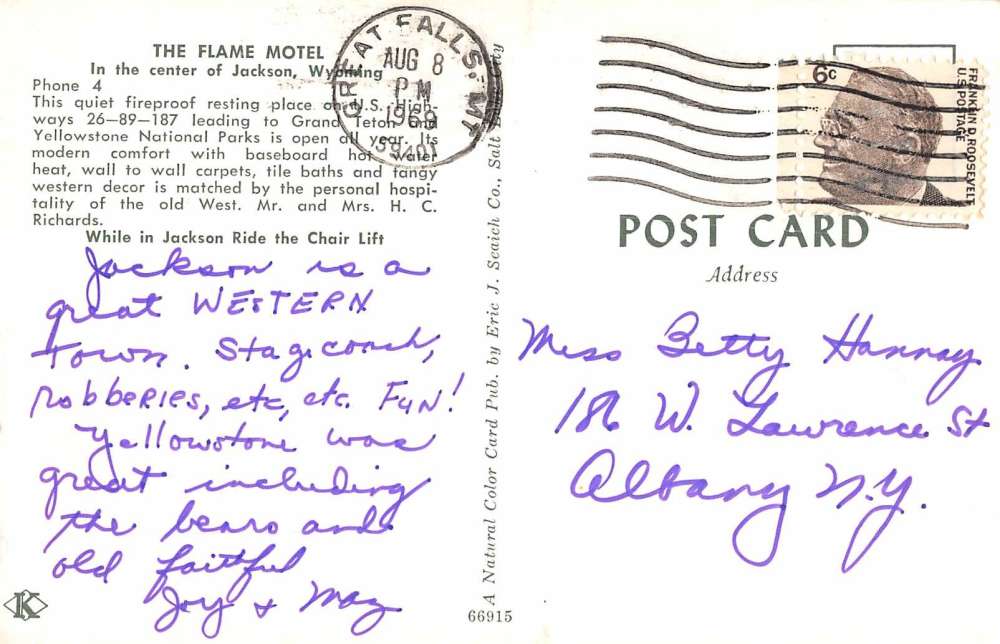 THE FLAME MOTEL
In the center of Jackson, Wyoming
Phone 4
This quiet fireproof resting place on U.S. High-
ways 26—89—187 leading to Grand Teton and
Yellowstone National Parks is open all year. Its
modern comfort with baseboard hot water
heat, wall to wall carpets, tile baths and tangy
western decor is matched by the personal hospi-
tality of the old West. Mr. and Mrs. H. C.
Richards.
While in Jackson Ride the Chair Lift
Jackson is a
great WESTERN
Town. Stagecoach,
RobbeRies, etc, etc. FUN!
Yellowstone was
great including
the bears and
old faithful
Joy +
K
GREAT FALLS, MT
AUG 8
PM
1968
59401
A Natural Color Card Pub. by Eric J. Seaich Co., Salt Lake City
66915
6c
FRANKLIN D. ROOSEVELT
U.S. POSTAGE
POST CARD
Address
Miss Betty Hannay
186 W. Lawrence St
Albany N.Y.